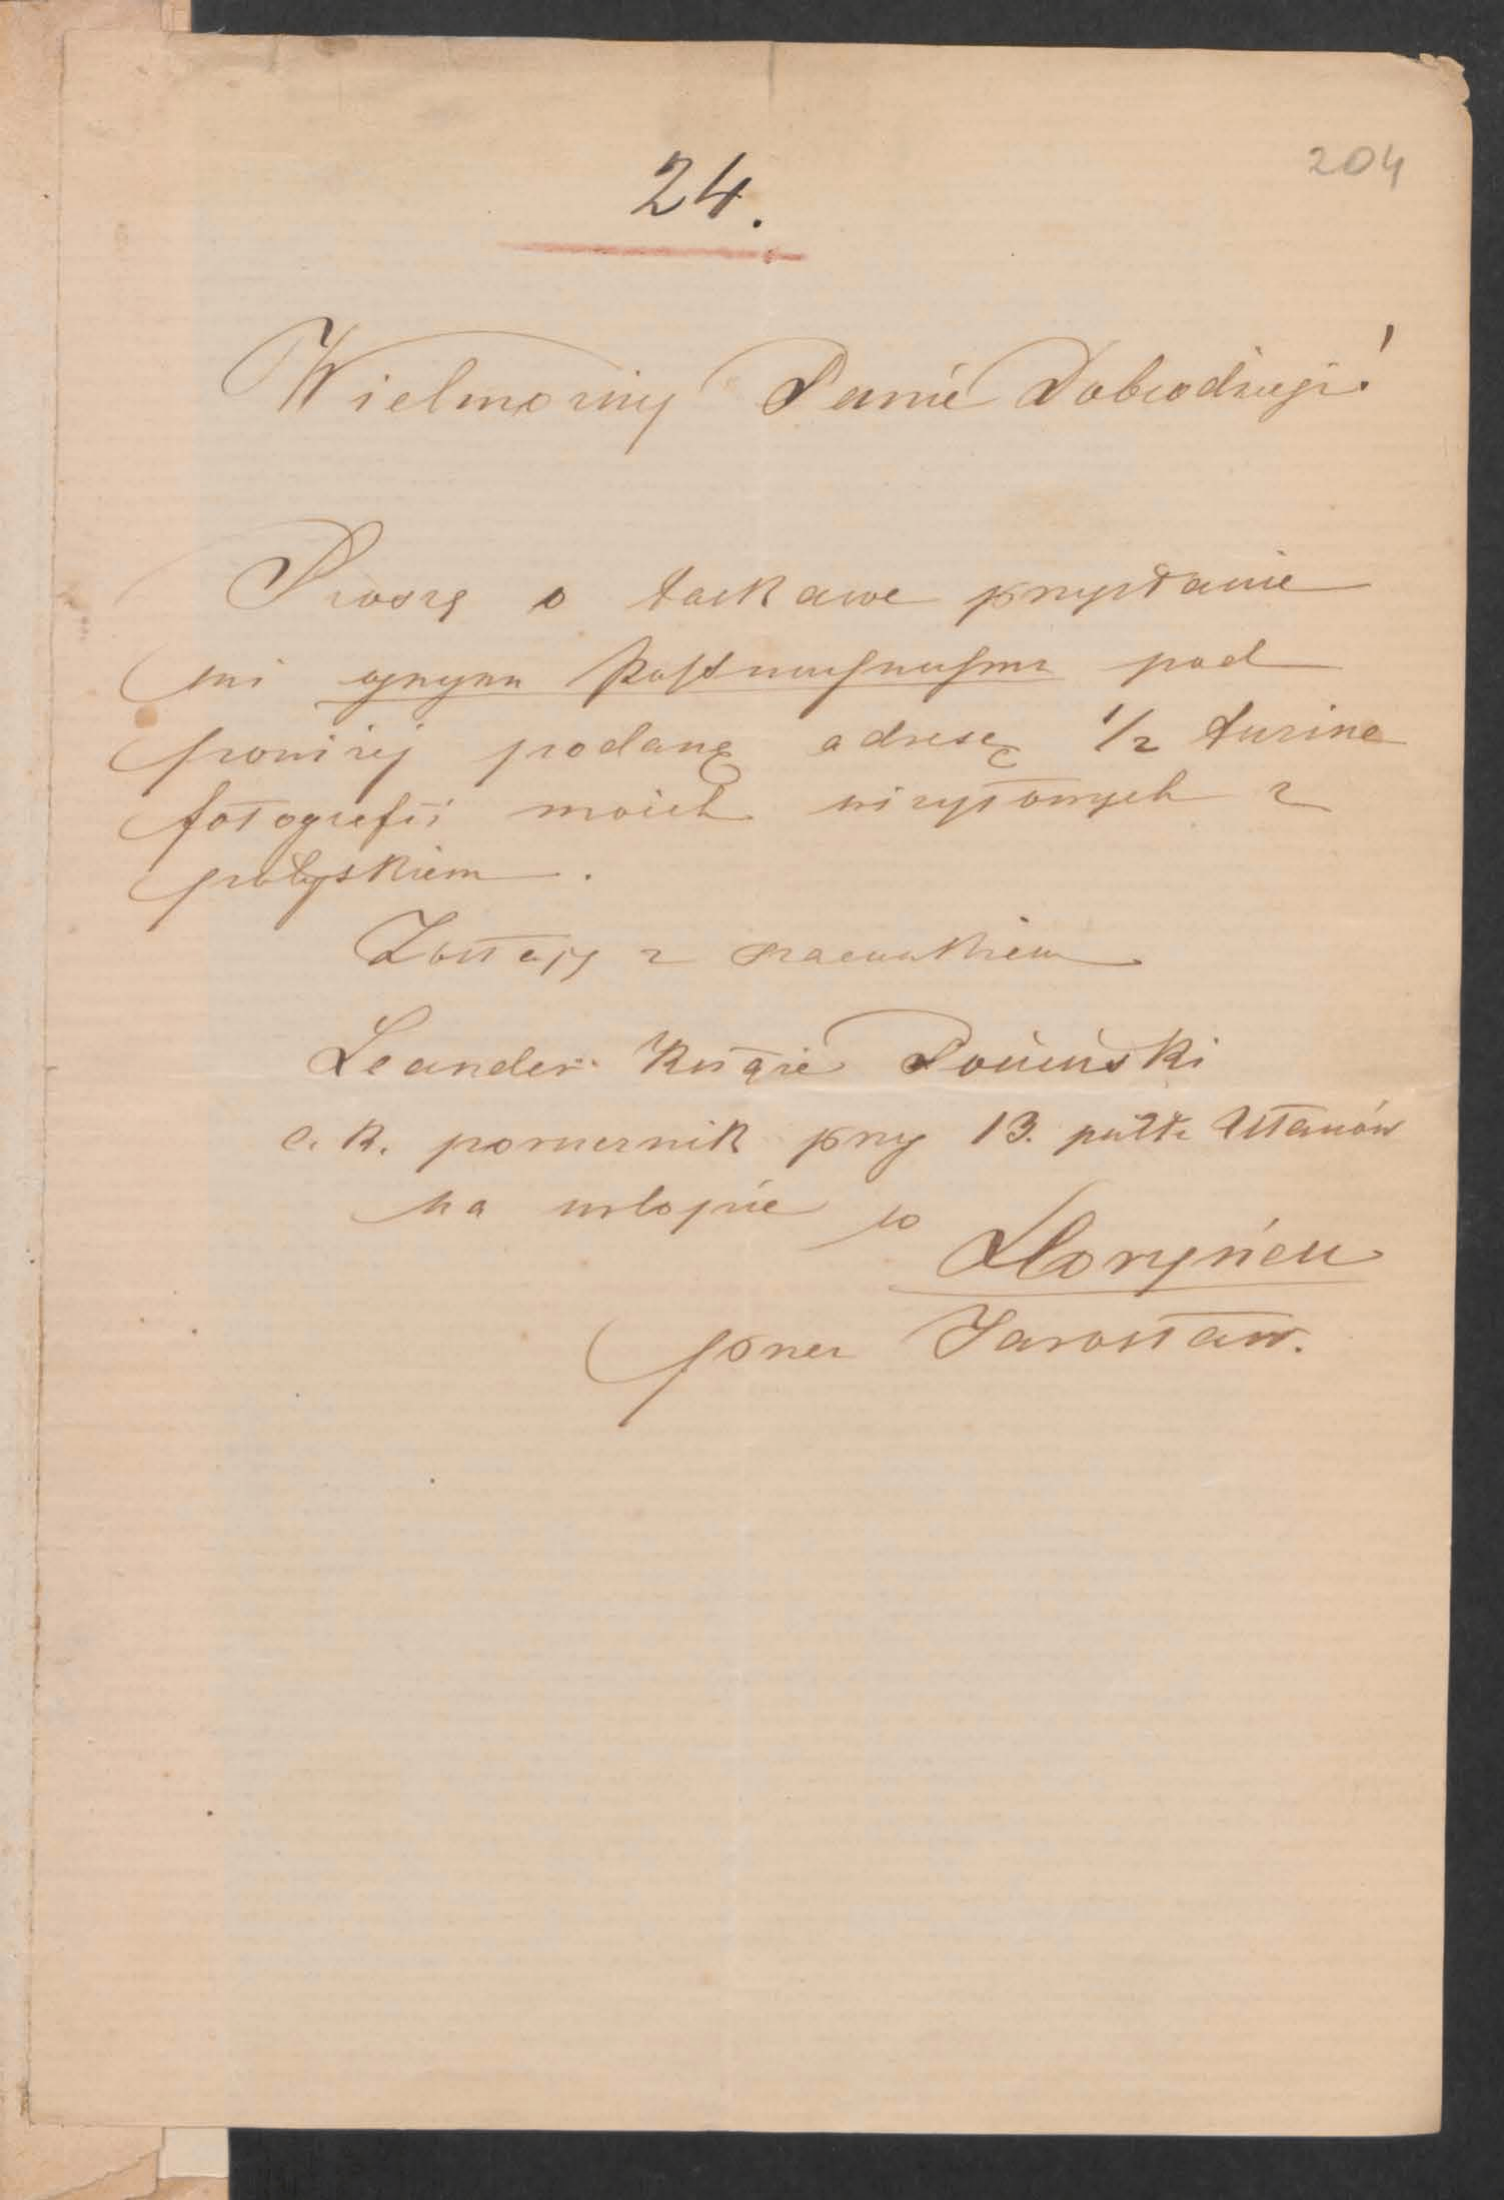 204
24.
Wielmożny Panie Dobrodzieju!
Proszę o łaskawe przysłanie
mi gegen Postnachnahme pod
poniżej podanę adresę 1/2 tuzina
fotografii moich wizytowych z
połyskiem.
Zostaję z szacunkiem
Leander Książe Poniński
c. k. porucznik przy 13. pułku Ułanów
na urlopie w
Horyńcu
przez Jarosław.